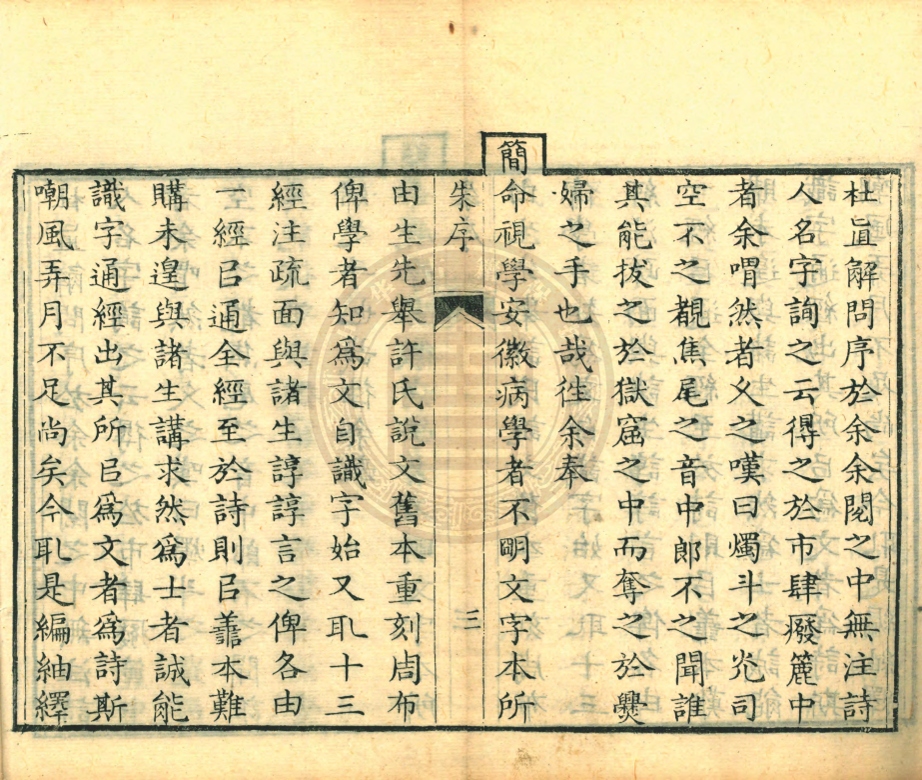 杜眞解問序於余余閱之中無注詩
人名字詢之云得之於市肆癈簏中
者余喟然者久之嘆曰燭斗之光司
空不之覩焦尾之音中郎不之聞誰
其能拔之於獄窟之中而奪之於爨
婦之手也哉徃余奉
簡命視學安徽病學者不朙文字本所
朱序
三
由生先舉許氏說文舊本重刻周布
俾學者知爲文自識字始又取十三
經注疏面與諸生諄諄言之俾各由
一經㠯通全經至於詩則㠯譱本難
購未遑與諸生講求然爲士者誠能
識字通經出其所㠯爲文者爲詩斯
嘲風弄月不足尚矣今取是編紬繹